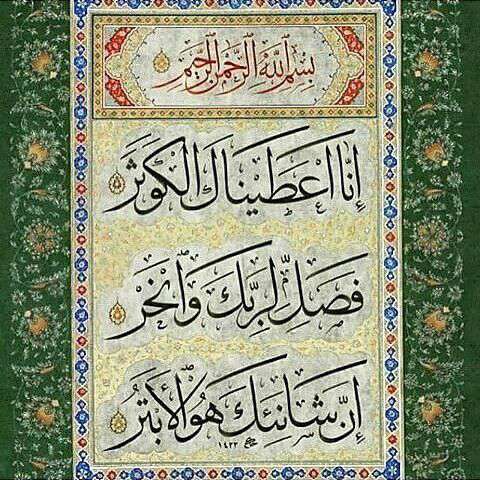 بِسْمِ ٱللَّهِ ٱلرَّحْمَٰنِ ٱلرَّحِيمِ
إِنَّا أَعْطَيْنَاكَ الْكَوْثَرَ
فَصَلِّ لِرَبِّكَ وَٱنْحَرْ
إِنَّ شَانِئَكَ هُوَ الْأَبْتَرُ
١٤٢٢